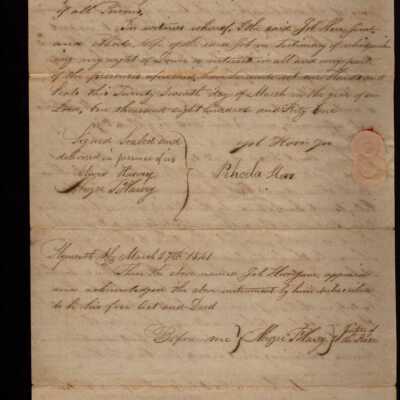 of all Persons.
In witness whereof, I the said Job Horr Junr.
and Rhoda wife of the said Job in testimony of relinquish
ing my right of Dower or interest in all and any part
of the premises aforesaid, have hereunto set our Hands and
Seals this Twenty Seventh day of March in the year of our
Lord, One thousand eight hundred and Fifty One
Signed Sealed and
delivered in presence of us
Harvy
Harvy
Job Horr Jr
Rhoda Horr
Plymouth Ss March 27th
Then the above named Job Horr Junr. appeared
and acknowledged the above instrument by him subscribed
to be his free Act and Deed
Before me Harvy Justice of
the Peace